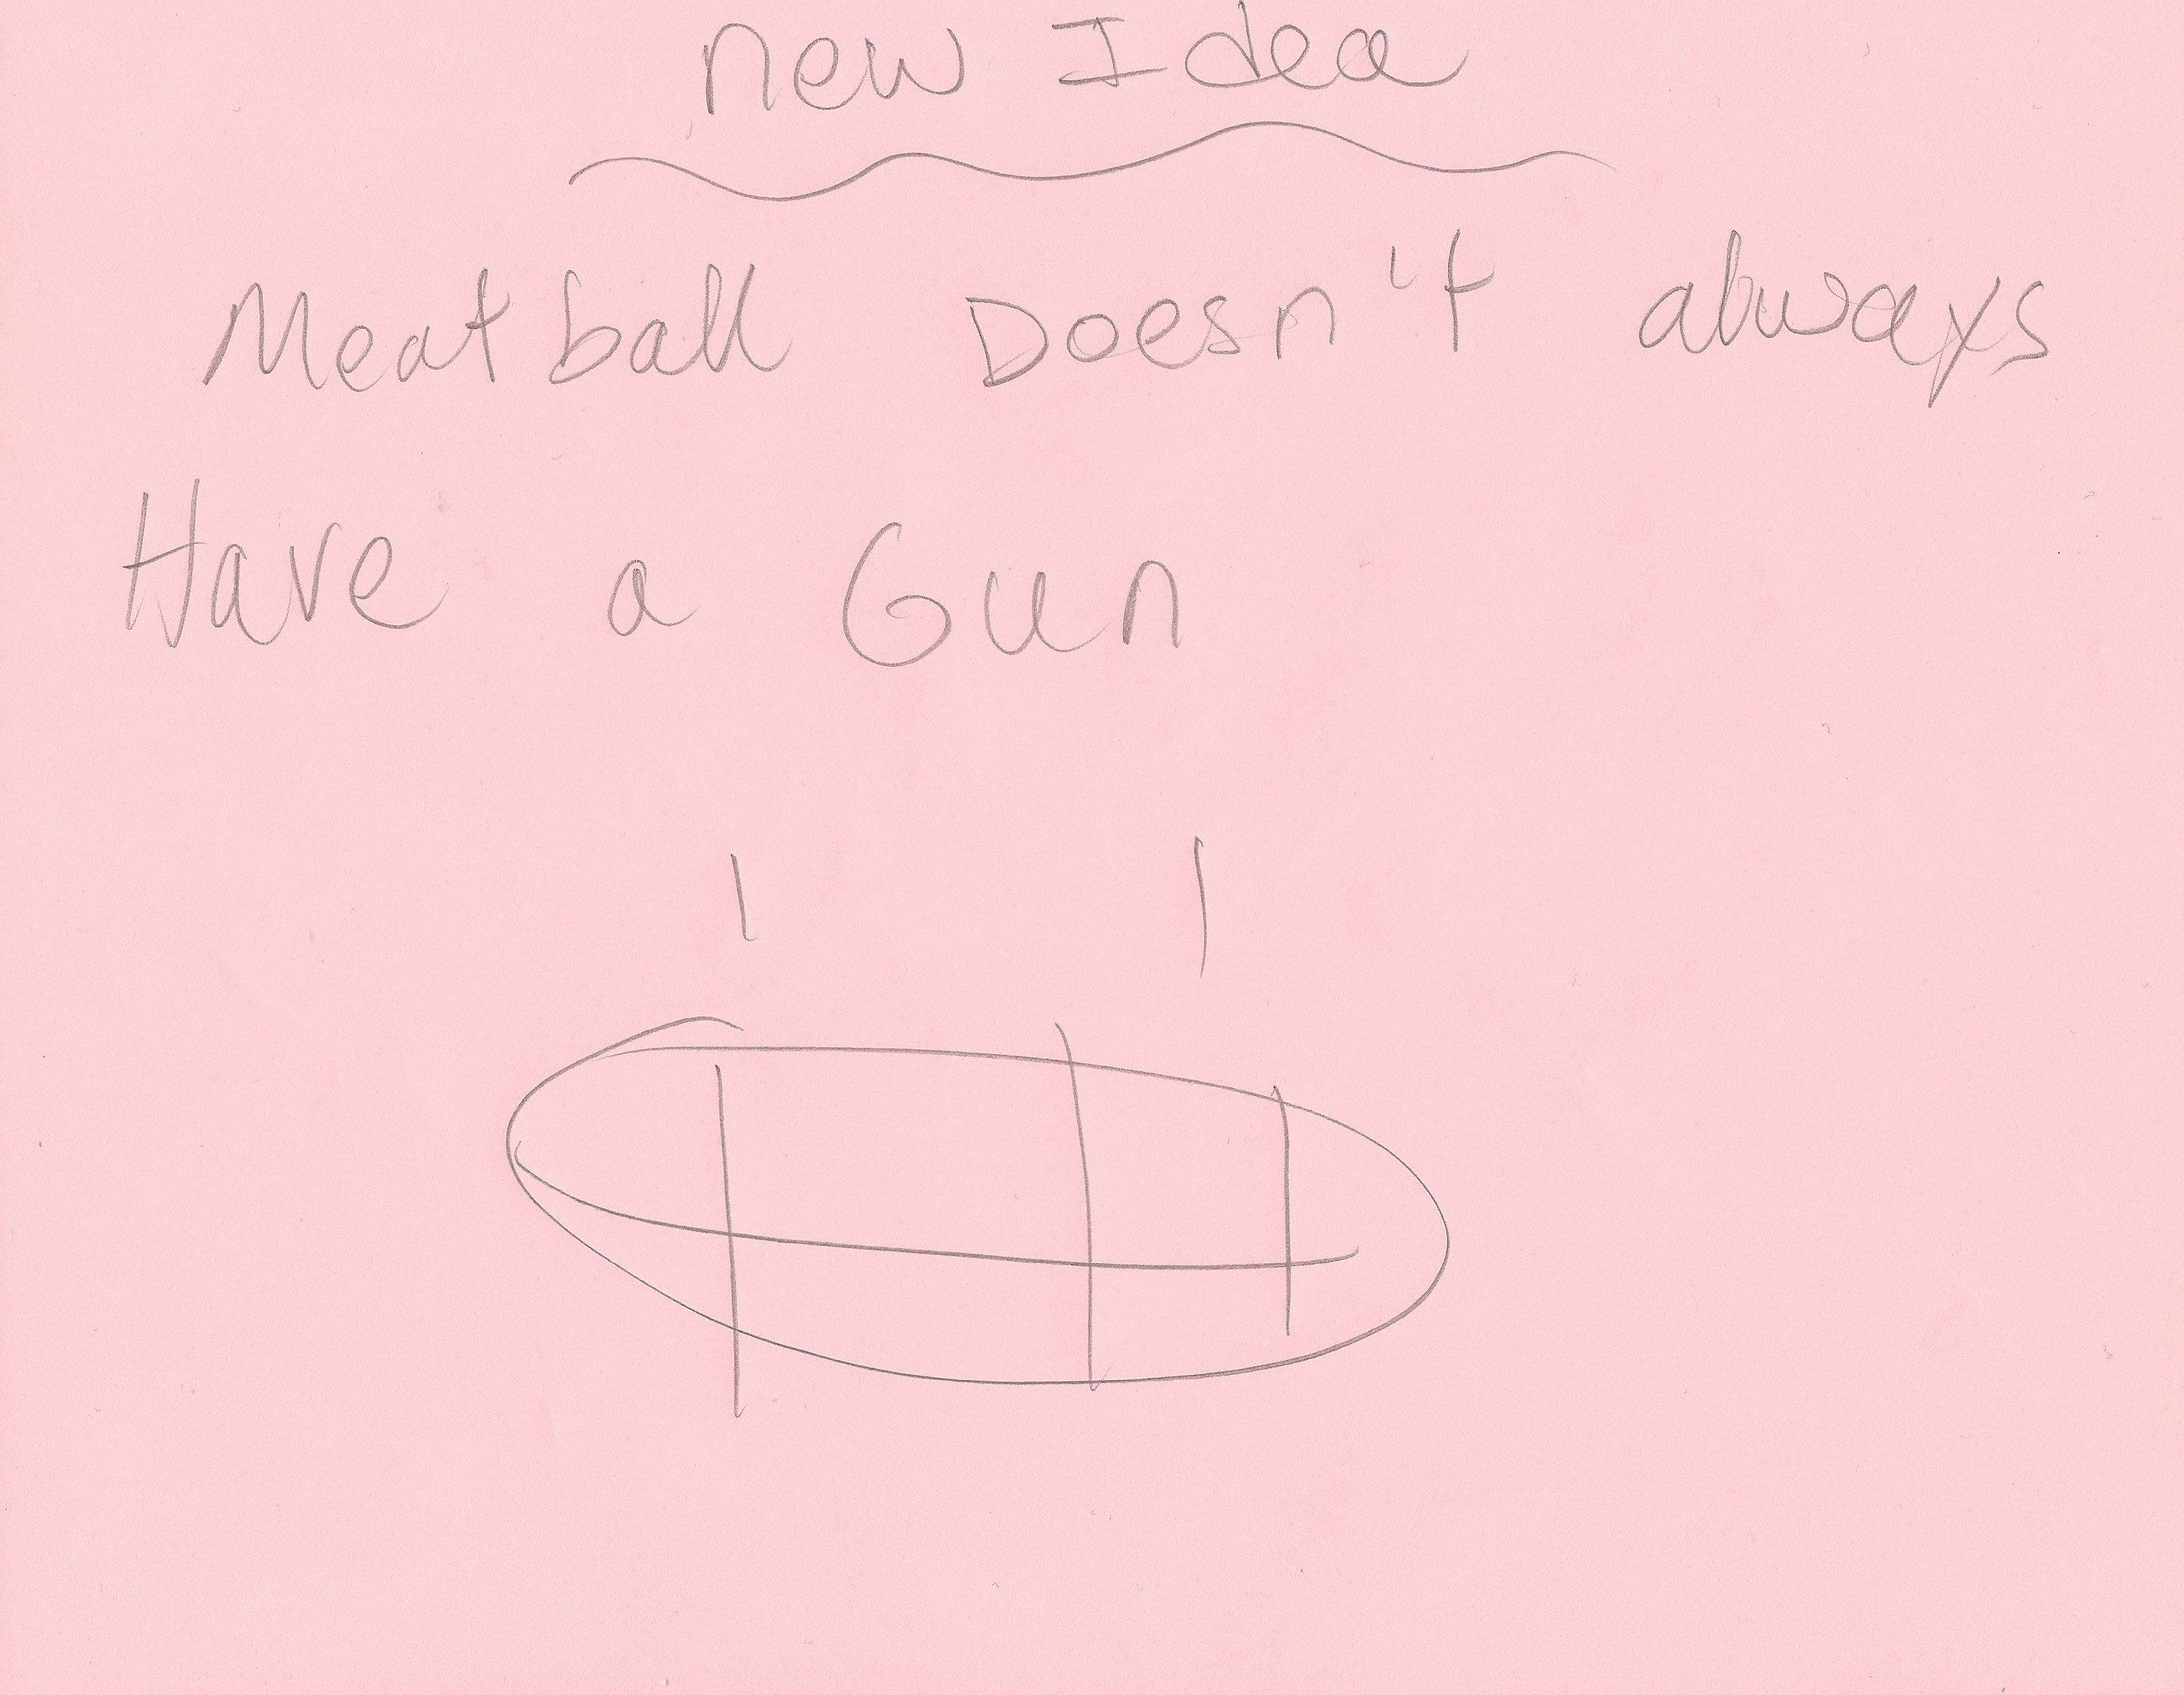 new Idea
Meatball Doesn't always
Have a Gun